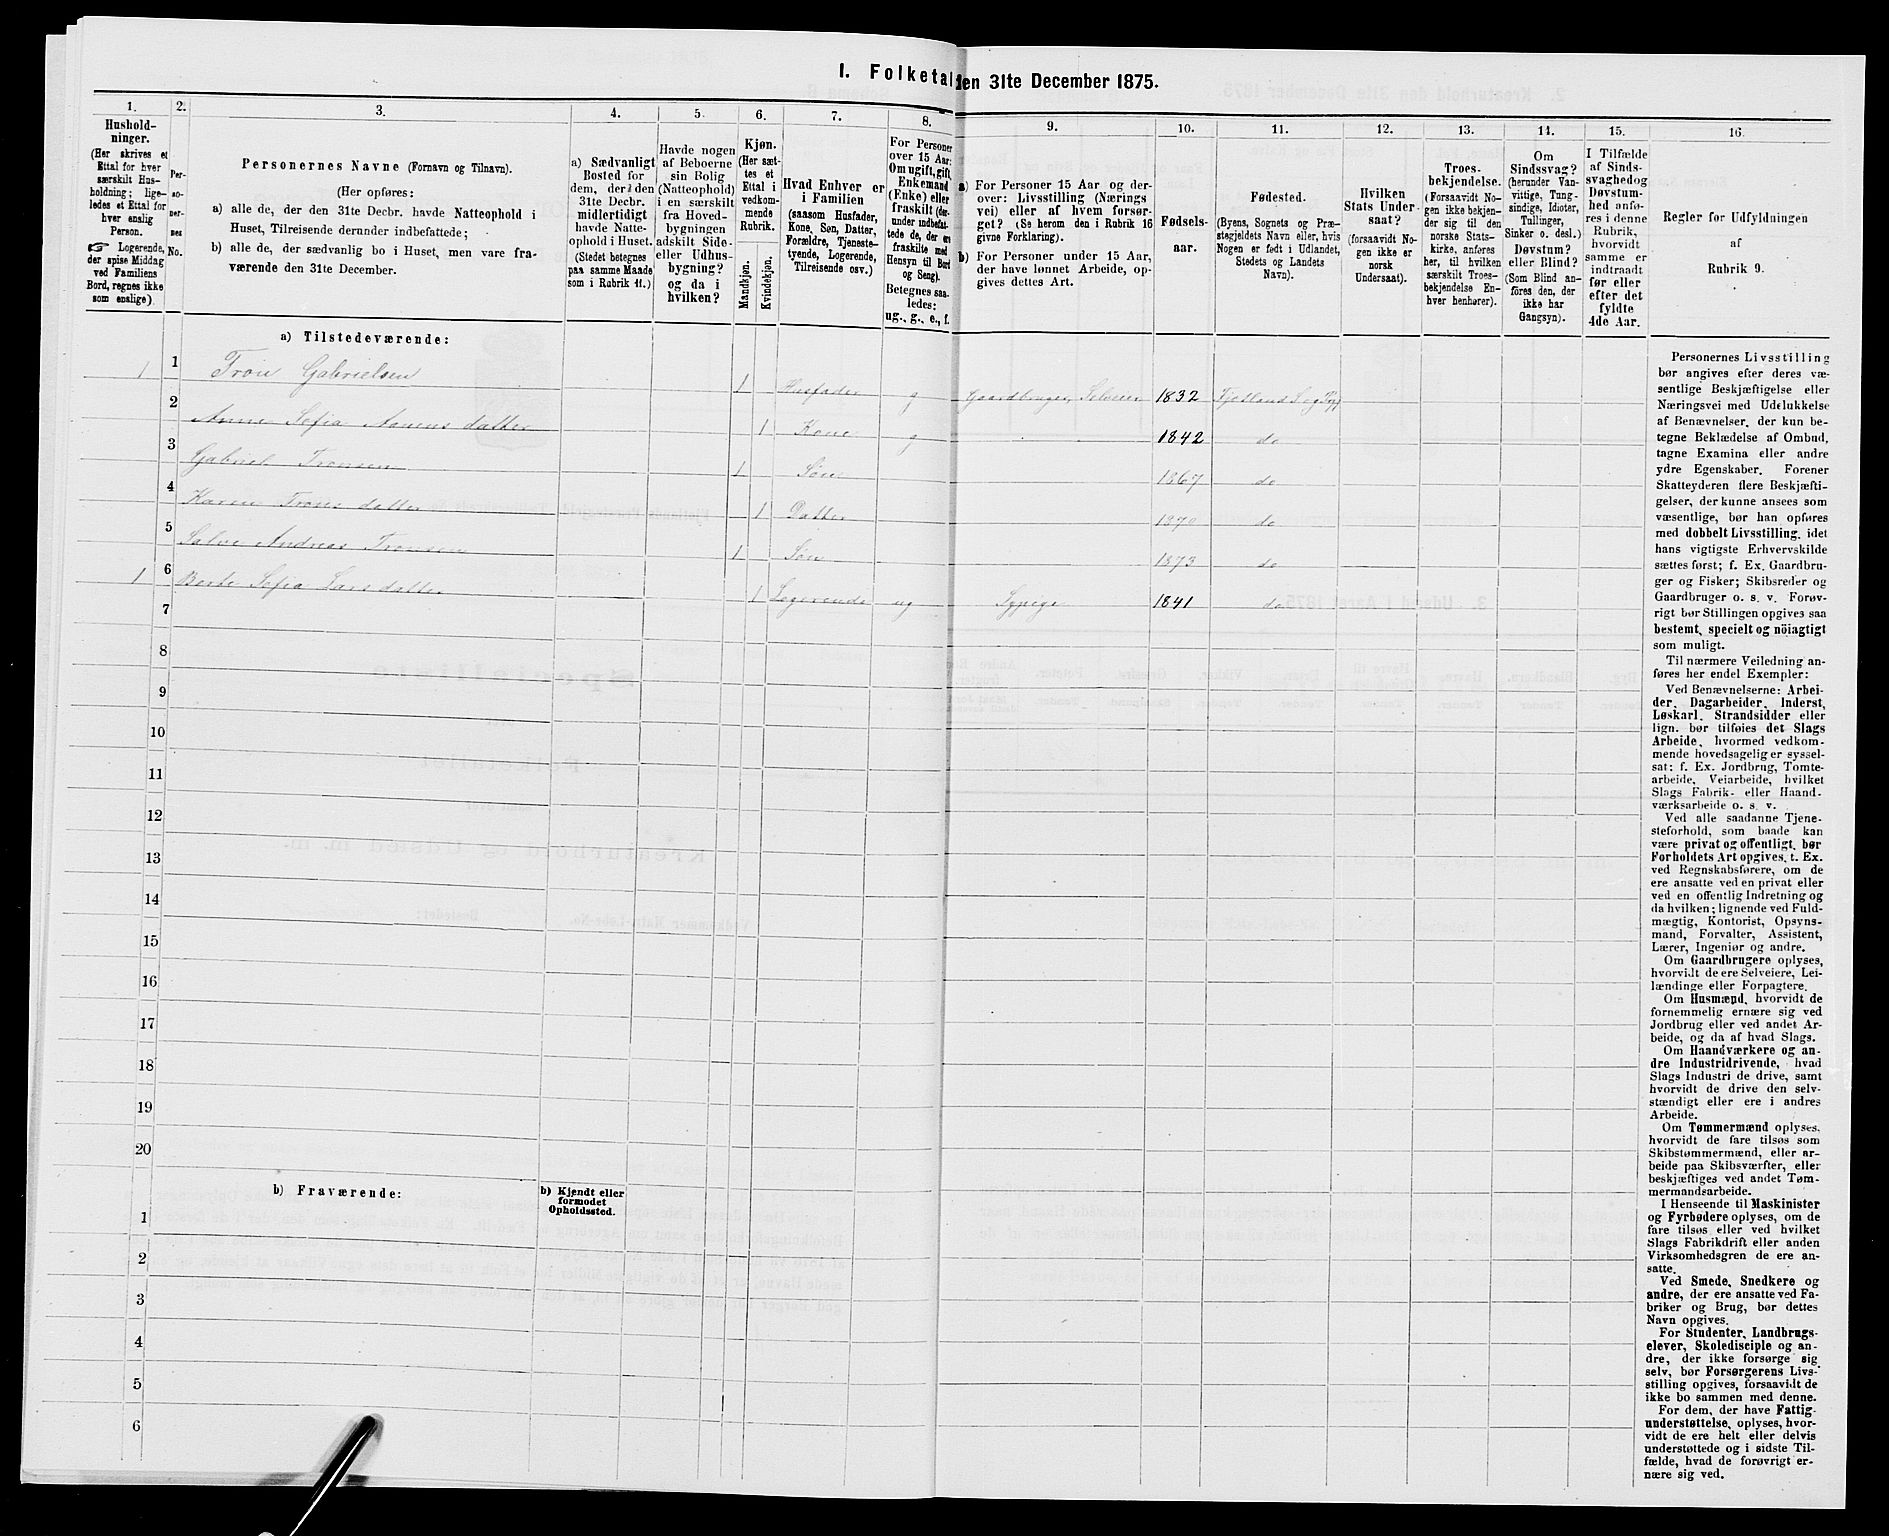 I. Folketal den 31te December 1875.
1. 2. 3. 4. 5. 6. 7. 8. 9. 10. 11. 12. 13. 14. 15. 16.
Hushold-
ninger.
(Her skrives et
Ettal for hver
særskilt Hus-
holdning; lige-
ledes et Ettal for
hver enslig
Person.
☞ Logerende,
der spise Middag
ved Familiens
Bord, regnes ikke
som enslige).
Per-
so-
ner-
nes
No.
Personernes Navne (Fornavn og Tilnavn).
(Her opføres:
a) alle de, der den 31te Decbr. havde Natteophold i
Huset, Tilreisende derunder indbefattede;
b) alle de, der sædvanlig bo i Huset, men vare fra-
værende den 31te December.
a) Sædvanligt
Bosted for
dem, der den
31te Decbr.
midlertidigt
havde Natte-
ophold i Huset.
(Stedet betegnes
paa samme Maade
som i Rubrik 11.)
Havde nogen
af Beboerne
sin Bolig
(Natteophold)
i en særskilt
fra Hoved-
bygningen
adskilt Side-
eller Udhus-
bygning?
og da i
hvilken?
Kjøn.
(Her sæt-
tes et
Ettal i
vedkom-
mende
Rubrik.
Mandkjøn.
Kvindekjøn.
Hvad Enhver er
i Familien
(saasom Husfader,
Kone, Søn, Datter,
Forældre, Tjeneste-
tyende, Logerende,
Tilreisende osv.)
For Personer
over 15 Aar:
Om ugift, gift,
Enkemand
(Enke) eller
fraskilt (der-
under indbefat-
tede de, der ere
fraskilte med
Hensyn til Bord
og Seng).
Betegnes saa-
ledes:
ug., g., e., f.
a) For Personer 15 Aar og der-
over: Livsstilling (Nærings
vei) eller af hvem forsør-
get? (Se herom den i Rubrik 16
givne Forklaring).
b) For Personer under 15 Aar,
der have lønnet Arbeide, op-
gives dettes Art.
Fødsels-
aar.
Fødested.
(Byens, Sognets og Præ-
stegjeldets Navn eller, hvis
Nogen er født i Udlandet,
Stedets og Landets
Navn).
Hvilken
Stats Under-
saat?
(forsaavidt No-
gen ikke er
norsk
Undersaat).
Troes-
bekjendelse.
(Forsaavidt No-
gen ikke bekjen-
der sig til den
norske Stats-
kirke, anføres
her, til hvilken
særskilt Troes-
bekjendelse En-
hver henhører).
Om
Sindssvag?
(herunder Van-
vittige, Tung-
sindige, Idioter,
Tullinger,
Sinker o. desl.)
Døvstum?
eller Blind?
(Som Blind an-
føres den, der
ikke har
Gangsyn).
I Tilfælde
af Sinds-
svaghed og
Døvstum-
hed anfø-
res i denne
Rubrik,
hvorvidt
samme er
indtraadt
før eller
efter det
fyldte
4de Aar.
Regler for Udfyldningen
af
Rubrik 9.
a) Tilstedeværende:
1 1 Tron Gabrielsen 1 Husfader g Gaardbruger, Selveier 1832 Fjotland S. og Pgj
2 Anne Sofia Aanensdatter 1 Kone g 1842 do
3 Gabriel Tronsen 1 Søn 1867 do
4 Karen Tronsdatter 1 Datter 1870 do
5 Salve Andreas Tronsen 1 Søn 1873 do
1 6 Berte Sofia Larsdatter 1 Logerende ug Sypige 1841 do
7
8
9
10
11
12
13
14
15
16
17
18
19
20
b) Fraværende:
b) Kjendt eller
formodet
Opholdssted.
1
2
3
4
5
6
Personernes Livsstilling
bør angives efter deres væ-
sentlige Beskjæftigelse eller
Næringsvei med Udelukkelse
af Benævnelser, der kun be-
tegne Beklædelse af Ombud,
tagne Examina eller andre
ydre Egenskaber. Forener
Skatteyderen flere Beskjæfti-
gelser, der kunne ansees som
væsentlige, bør han opføres
med dobbelt Livsstilling, idet
hans vigtigste Erhvervskilde
sættes først; f. Ex. Gaardbru-
ger og Fisker; Skibsreder og
Gaardbruger o. s. v. Forøv-
rigt bør Stillingen opgives saa
bestemt, specielt og nöiagtigt
som muligt.
Til nærmere Veiledning an-
føres her endel Exempler:
Ved Benævnelserne: Arbei-
der, Dagarbeider, Inderst,
Løskarl, Strandsidder eller
lign. bør tilføies det Slags
Arbeide, hvormed vedkom-
mende hovedsagelig er syssel-
sat: f. Ex. Jordbrug, Tomte-
arbeide, Veiarbeide, hvilket
Slags Fabrik- eller Haand-
værksarbeide o. s. v.
Ved alle saadanne Tjene-
steforhold, som baade kan
være privat og offentligt, bør
Forholdets Art opgives, t. Ex.
ved Regnskabsførere, om de
ere ansatte ved en privat eller
ved en offentlig Indretning og
da hvilken; lignende ved Fuld-
mægtig, Kontorist, Opsyns-
mand, Forvalter, Assistent,
Lærer, Ingeniør og andre.
Om Gaardbrugere oplyses,
hvorvidt de ere Selveiere, Lei-
lændinge eller Forpagtere.
Om Husmænd, hvorvidt de
fornemmelig ernære sig ved
Jordbrug eller ved andet Ar-
beide, og da af hvad Slags.
Om Haandværkere og an-
dre Industridrivende, hvad
Slags Industri de drive, samt
hvorvidt de drive den selv-
stændigt eller ere i andres
Arbeide.
Om Tømmermænd oplyses,
hvorvidt de fare tilsøs som
Skibstømmermænd, eller ar-
beide paa Skibsværfter, eller
beskjæftiges ved andet Tøm-
mermandsarbeide.
I Henseende til Maskinister
og Fyrbødere oplyses, om de
fare tilsøs eller ved hvilket
Slags Fabrikdrift eller anden
Virksomhedsgren de ere an-
satte.
Ved Smede, Snedkere og
andre, der ere ansatte ved Fa-
briker og Brug, bør dettes
Navn opgives.
For Studenter, Landbrugs-
elever, Skoledisciple og an-
dre, der ikke forsørge sig
selv, bør Forsørgerens Livs-
stilling opgives, forsaavidt de
ikke bo sammen med denne.
For dem, der have Fattig-
understøttelse, oplyses, hvor-
vidt de ere helt eller delvis
understøttede og i sidste Til-
fælde, hvad de forøvrigt er-
nære sig ved.